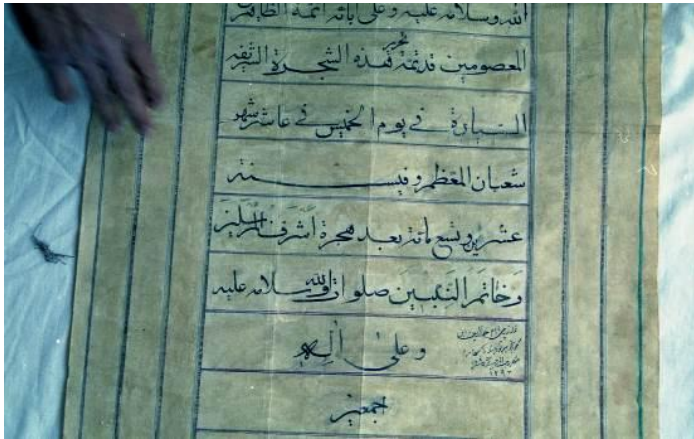 الله وسلامه عليه وعلى بائه ائمة الطاهرين
المعصومين قد تمت تحرير هذه الشجرة الشريفه
في يوم الخميس في عاشر شهر
شعبان المعظم و في سنة
عشرين وتسع مائة بعد هجرة اشرف المرسلين
وخاتم النبيين صلوات الله وسلامه عليه
وعلى اله
اجمعين